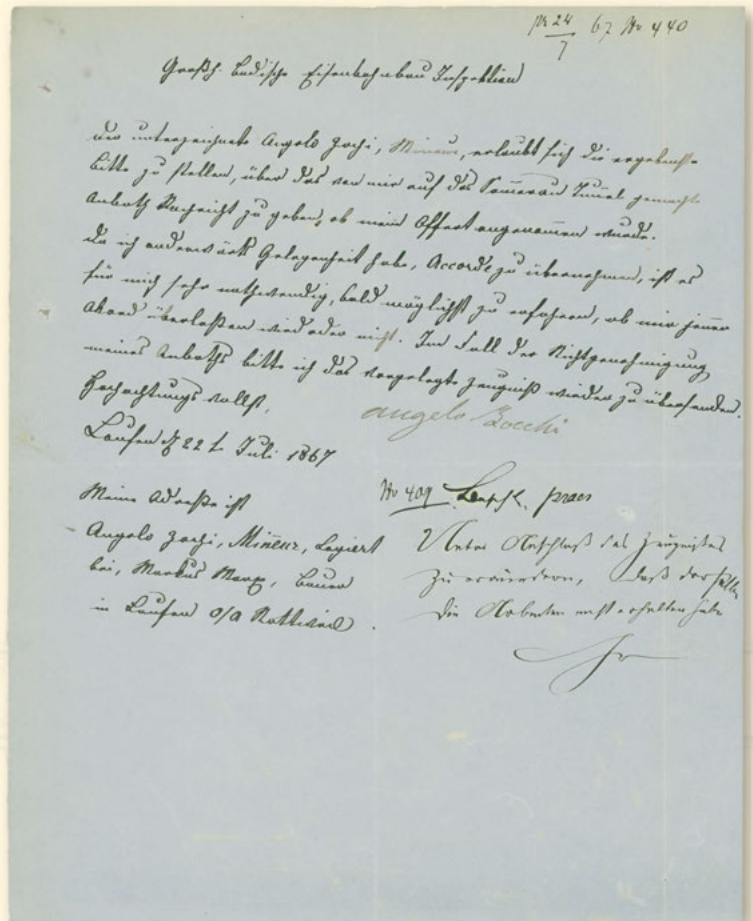 pr 24/7 67 No 440
Großh. Badische Eisenbahnbau Inspektion
Der unterzeichnete Angelo Zochi, Mineur, erlaubt sich die ergebenste
Bitte zu stellen, über das von mir auf das Sommerau Tunnel gemachte
Anboth Nachricht zu geben, ob mein Offert angenommen wurde.
Da ich anderwärts Gelegenheit habe, Accorde zu übernehmen, ist es
für mich sehr nothwendig, bald möglichst zu erfahren, ob mir jener
Akord überlaßen wird oder nicht. Im Fall der Nichtgenehmigung
meines Anboths bitte ich das vorgelegte Zeugniß wieder zu übersenden.
Hochachtungsvollst,
angelo Zocchi
Laufen d 22 t Juli 1867
Meine Adreße ist
Angelo Zochi, Mineur, Logiert
bei, Markus Marx, Bauer
in Laufen O/A Rottweil.
No 409 Beschl. praes
Unter Anschluß des Zeugnisses
zu erwiedern, daß derselbe
die Arbeiten nicht erhalten habe